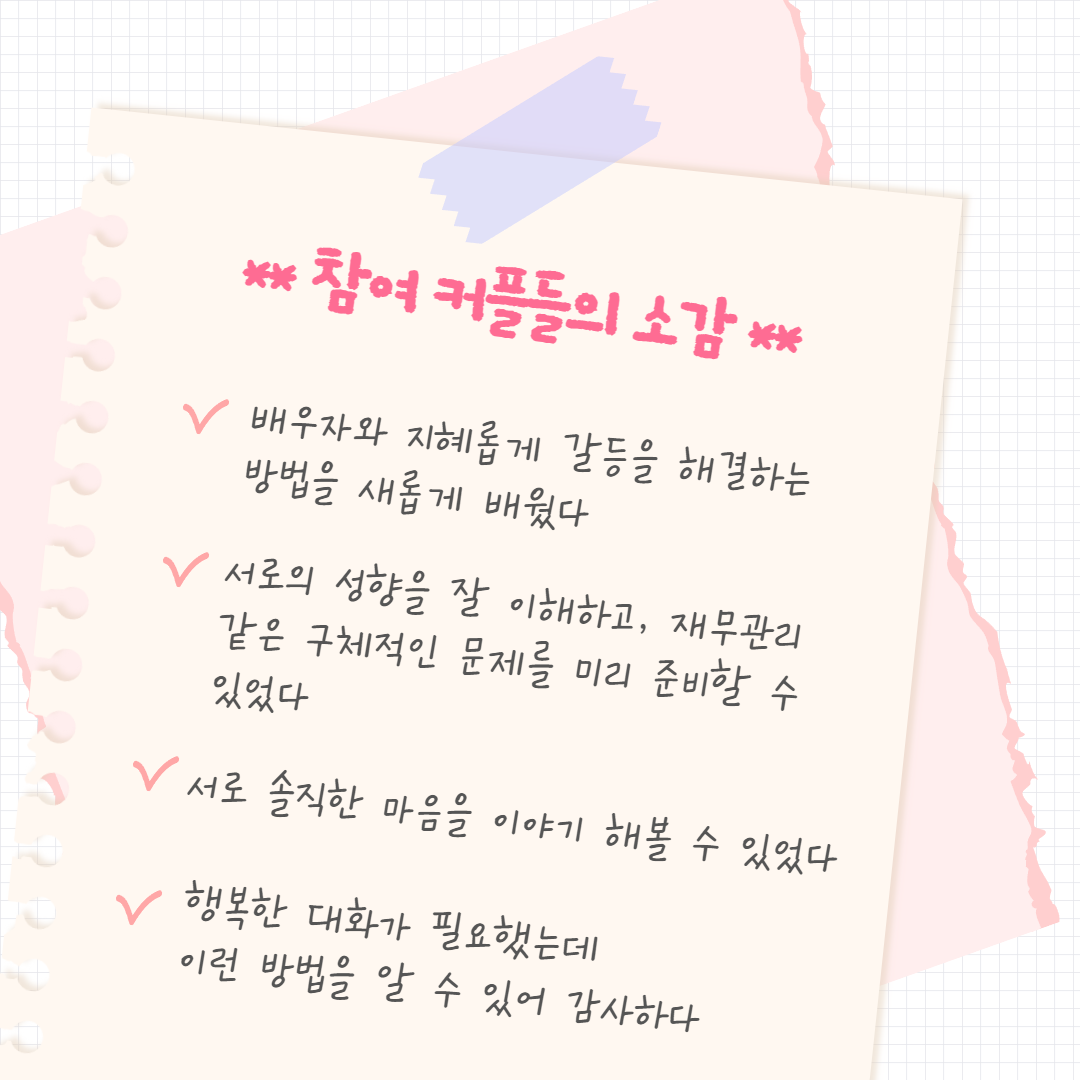 ** 참여 커플들의 소감 **
배우자와 지혜롭게 갈등을 해결하는
방법을 새롭게 배웠다
서로의 성향을 잘 이해하고, 재무관리
같은 구체적인 문제를 미리 준비할 수
있었다
서로 솔직한 마음을 이야기 해볼 수 있었다
행복한 대화가 필요했는데
이런 방법을 알 수 있어 감사하다